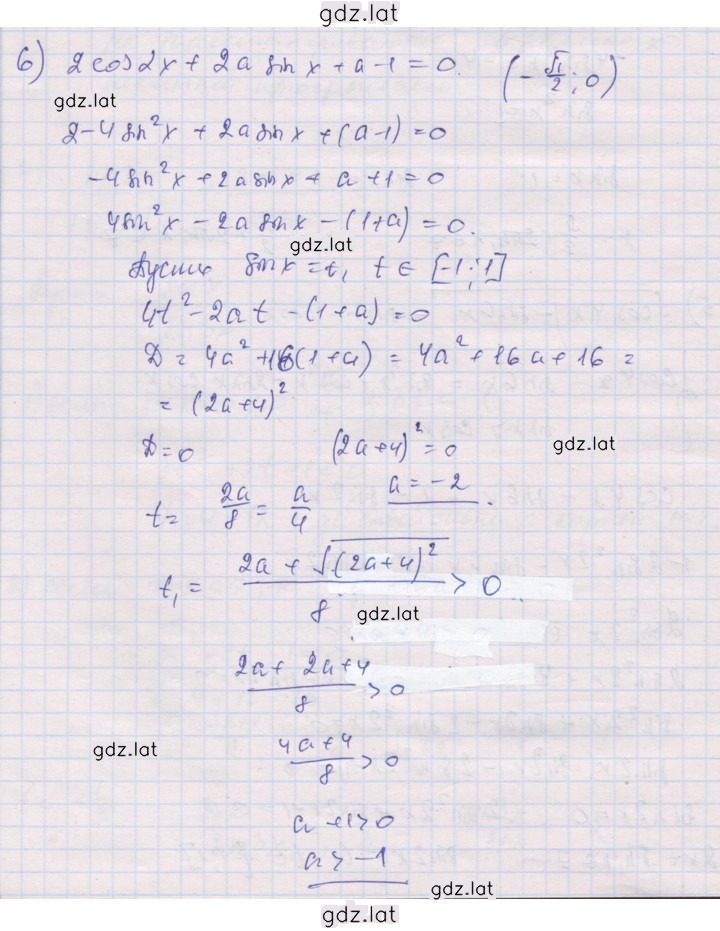 gdz.lat
6) 2cos2x + 2a sinx + a-1 = 0. (-√1/2; 0)
gdz.lat
2-4sin²x + 2asinx + (a-1) = 0
-4sin²x + 2asinx + a+1 = 0
4sin²x - 2a sinx - (1+a) = 0.
gdz.lat
Пусть sinx = t, t ∈ [-1; 1]
4t² - 2at - (1+a) = 0
D = 4a² + 16(1+a) = 4a² + 16a + 16 =
= (2a+4)²
D = 0 (2a+4)² = 0 gdz.lat
t = 2a/8 = a/4 a = -2.
t₁ = (2a + √(2a+4)²)/8 > 0
gdz.lat
(2a + 2a+4)/8 > 0
gdz.lat (4a+4)/8 > 0
a+1>0
a > -1
gdz.lat
gdz.lat